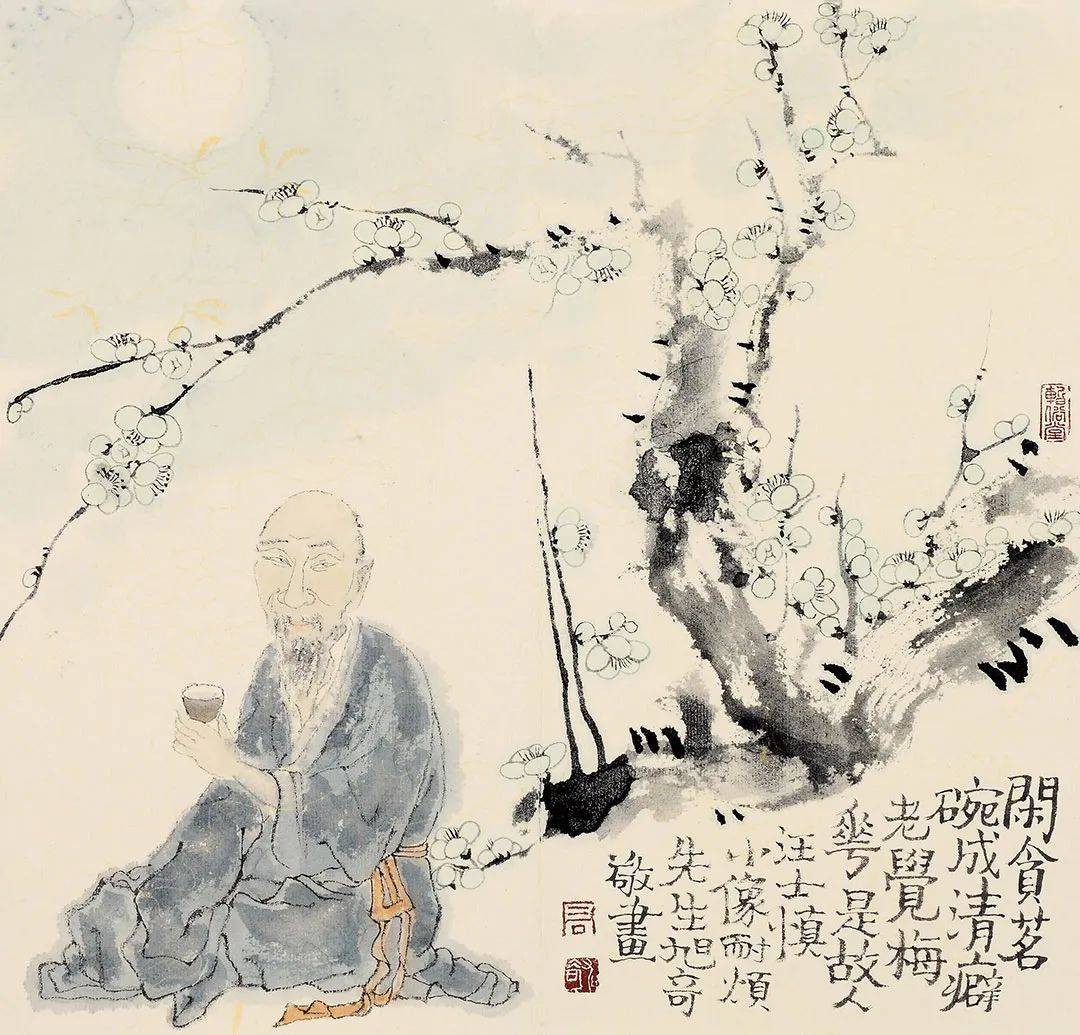 閑貪茗
碗成清癖
老覺梅
華是故人
汪士慎
小像耐煩
先生旭奇
敬畫